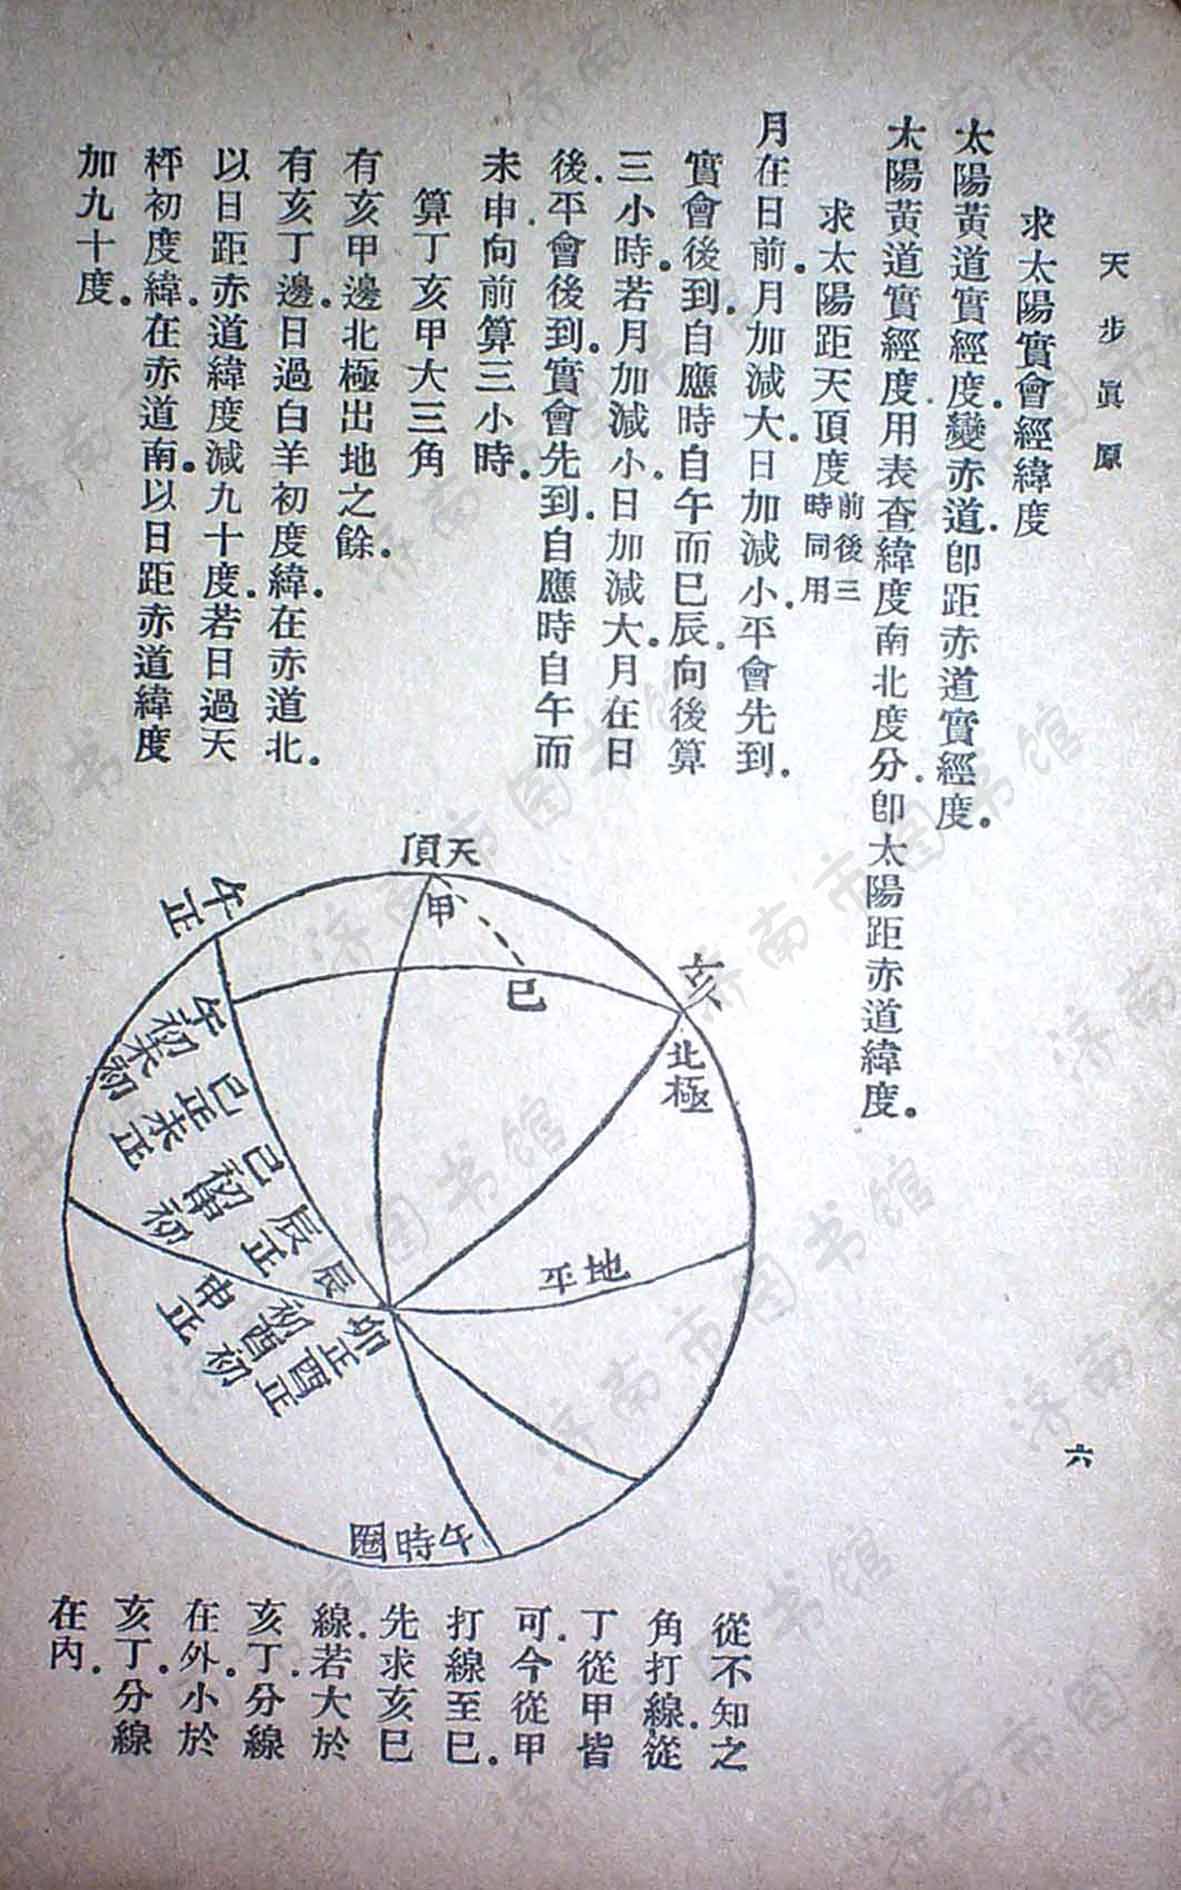 天步眞原
六
求太陽實會經緯度
太陽黃道實經度。變赤道。卽距赤道實經度。
太陽黃道實經度用表查緯度南北度分。卽太陽距赤道緯度。
求太陽距天頂度前後三時同用
月在日前。月加減大。日加減小。平會先到。
實會後到。自應時自午而巳辰。向後算
三小時。若月加減小。日加減大。月在日
後。平會後到。實會先到。自應時自午而
未申向前算三小時。
算丁亥甲大三角
有亥甲邊北極出地之餘。
有亥丁邊。日過白羊初度緯。在赤道北。
以日距赤道緯度減九十度。若日過天
秤初度緯。在赤道南。以日距赤道緯度
加九十度。
天頂
甲
巳
亥
北極
地平
午時圈
午正
午初
未初
巳正
未正
巳初
申初
辰正
申正
辰初
酉初
卯正
酉正
從不知之
角打線。從
丁從甲皆
可。今從甲
打線至巳。
先求亥巳
線。若大於
亥丁。分線
在外。小於
亥丁。分線
在內。
济南市图书馆